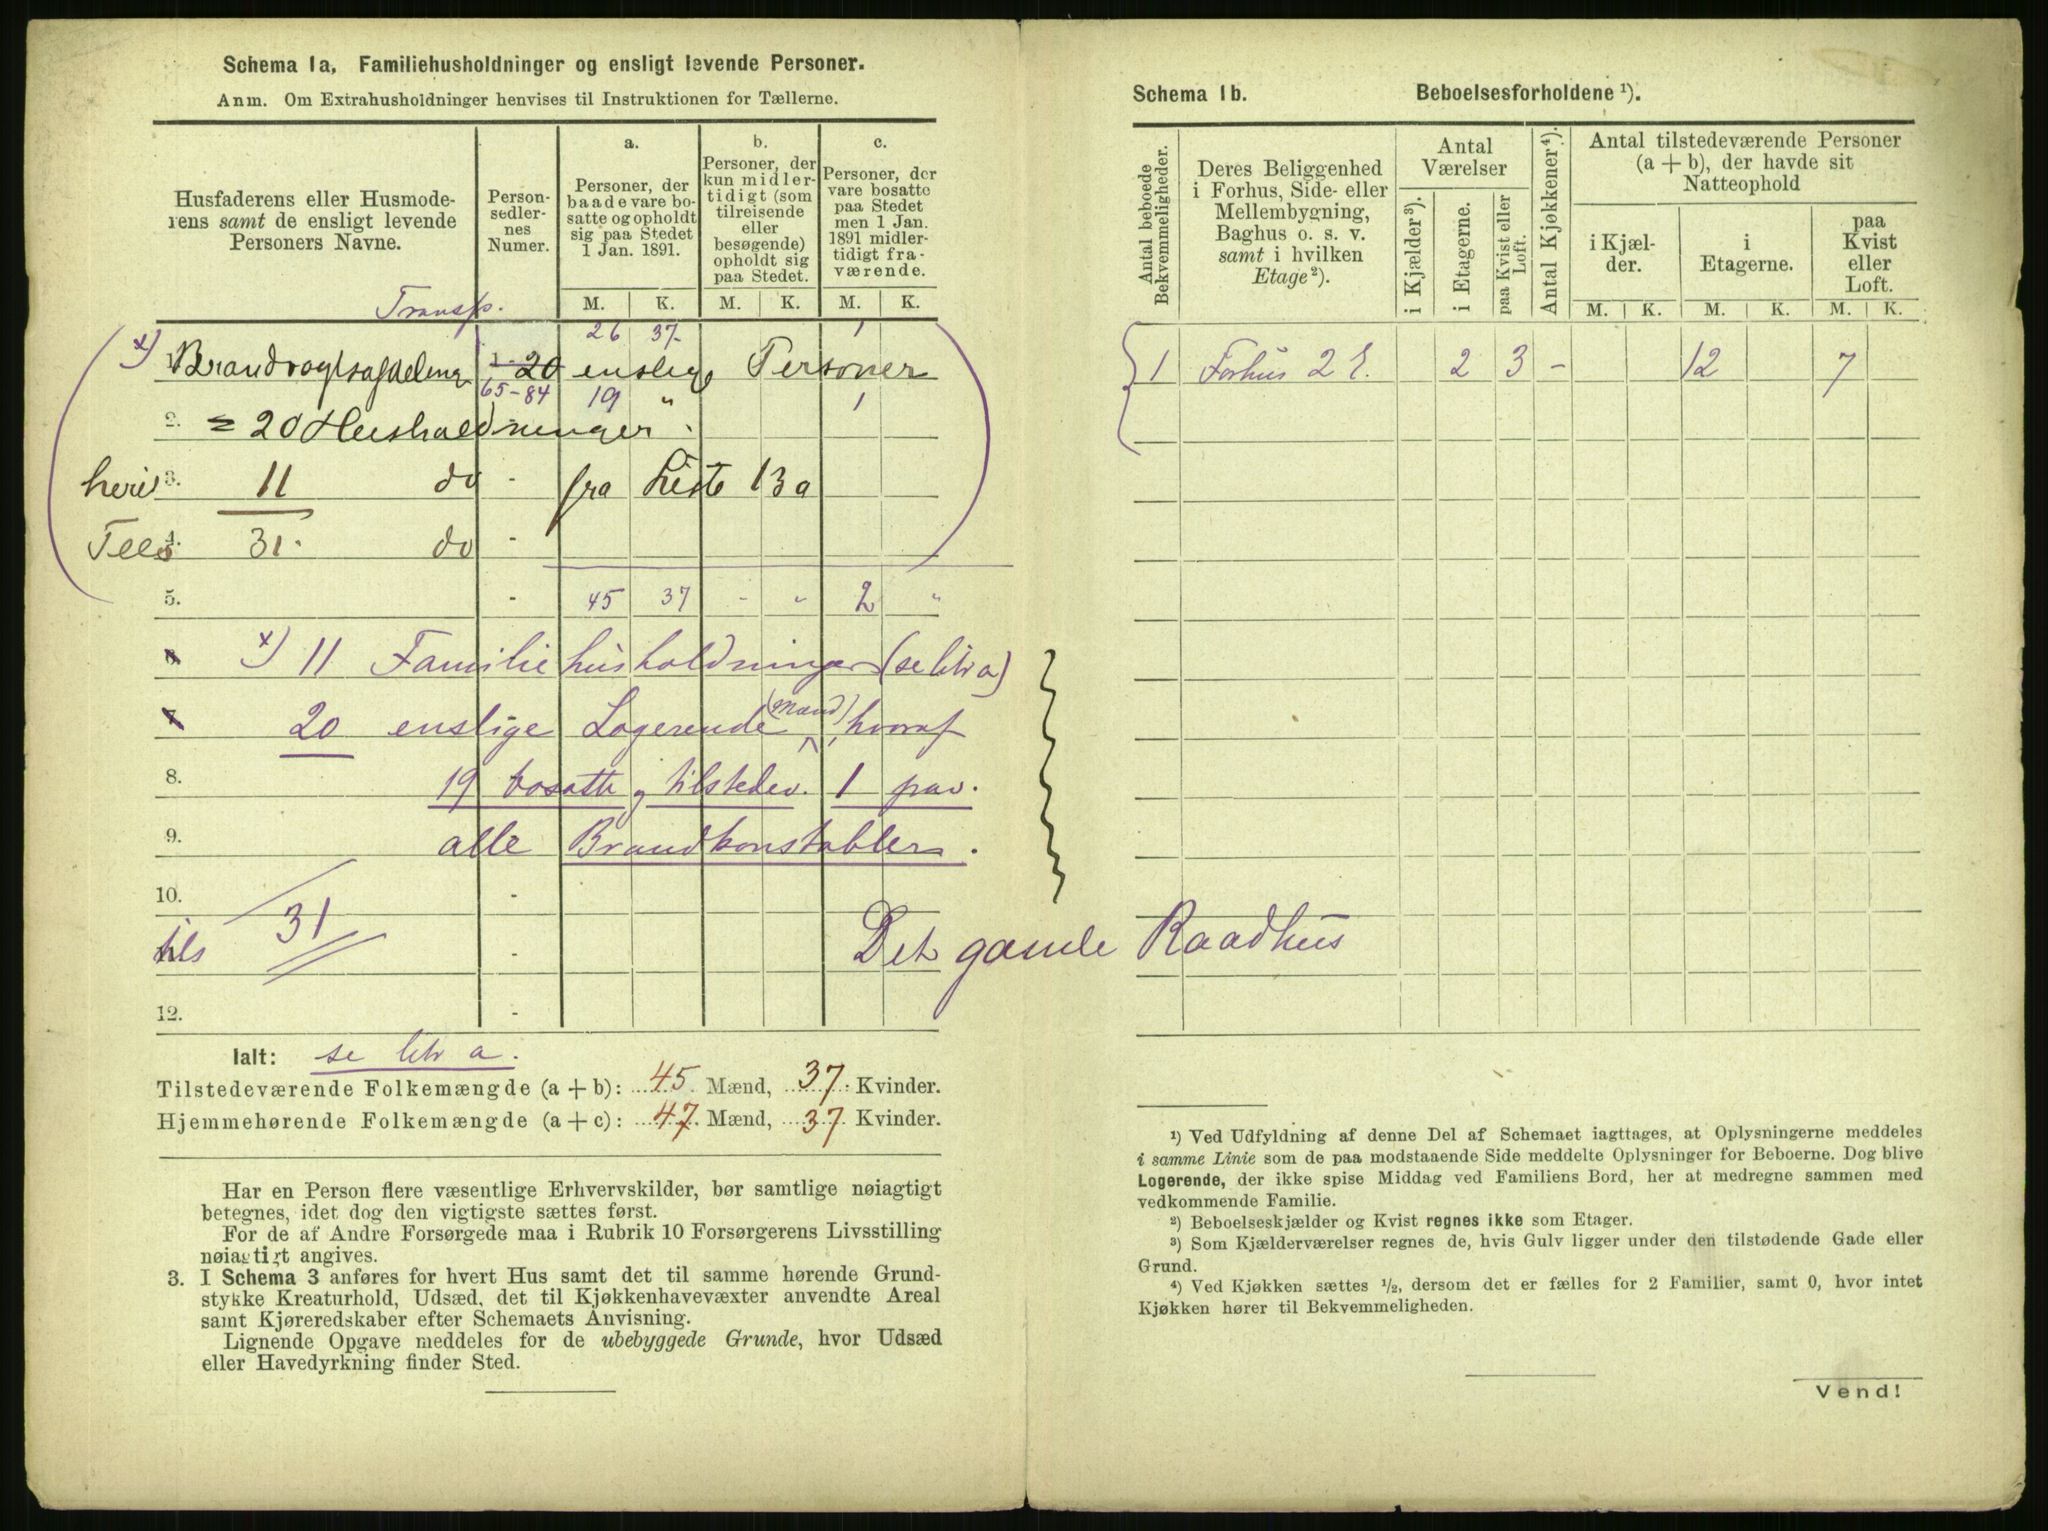 Schema 1a. Familiehusholdninger og ensligt levende Personer.
Anm. Om Extrahusholdninger henvises til Instruktionen for Tællerne.
Husfaderens eller Husmode-
rens samt de ensligt levende
Personers Navne.
Person-
sedler-
nes
Numer.
a.
Personer, der
baade vare bo-
satte og opholdt
sig paa Stedet
1 Jan. 1891.
b.
Personer, der
kun midler-
tidigt (som
tilreisende
eller
besøgende)
opholdt sig
paa Stedet.
c.
Personer, der
vare bosatte
paa Stedet
men 1 Jan.
1891 midler-
tidigt fra-
værende.
M. K. M. K. M. K.
Transp. 26 37 1
x) Brandvagtsafdeling 1-20 enslige Personer
65-84 19 " 1
2. = 20 Husholdninger.
3. 11 do - fra Liste 13a
4. 31. do -
5. - 45 37 - " 2 "
x) 11 Familiehusholdninger (se litr a)
20 enslige Logerende (Mænd), hvoraf
8. 19 bosatte og tilstedev. 1 frav.
9. alle Brandkonstabler.
10. -
tils 31 -
12. -
Det gamle Raadhus
Ialt: se litr a.
Tilstedeværende Folkemængde (a + b): 45 Mænd, 37 Kvinder.
Hjemmehørende Folkemængde (a + c): 47 Mænd, 37 Kvinder.
Har en Person flere væsentlige Erhvervskilder, bør samtlige nøiagtigt
betegnes, idet dog den vigtigste sættes først.
For de af Andre Forsørgede maa i Rubrik 10 Forsørgerens Livsstilling
nøiagtigt angives.
3. I Schema 3 anføres for hvert Hus samt det til samme hørende Grund-
stykke Kreaturhold, Udsæd, det til Kjøkkenhavevæxter anvendte Areal
samt Kjøreredskaber efter Schemaets Anvisning.
Lignende Opgave meddeles for de ubebyggede Grunde, hvor Udsæd
eller Havedyrkning finder Sted.
Schema 1b. Beboelsesforholdene ¹).
Antal beboede
Bekvemmeligheder.
Deres Beliggenhed
i Forhus, Side- eller
Mellembygning,
Baghus o. s. v.
samt i hvilken
Etage²).
Antal
Værelser
i Kjælder³).
i Etagerne.
paa Kvist eller
Loft.
Antal Kjøkkener⁴).
Antal tilstedeværende Personer
(a + b), der havde sit
Natteophold
i Kjæl-
der.
i
Etagerne.
paa
Kvist
eller
Loft.
M. K. M. K. M. K.
1 Forhus 2 E. 2 3 - 12 7
¹) Ved Udfyldning af denne Del af Schemaet iagttages, at Oplysningerne meddeles
i samme Linie som de paa modstaaende Side meddelte Oplysninger for Beboerne. Dog blive
Logerende, der ikke spise Middag ved Familiens Bord, her at medregne sammen med
vedkommende Familie.
²) Beboelseskjælder og Kvist regnes ikke som Etager.
³) Som Kjælderværelser regnes de, hvis Gulv ligger under den tilstødende Gade eller
Grund.
⁴) Ved Kjøkken sættes ½, dersom det er fælles for 2 Familier, samt 0, hvor intet
Kjøkken hører til Bekvemmeligheden.
Vend!